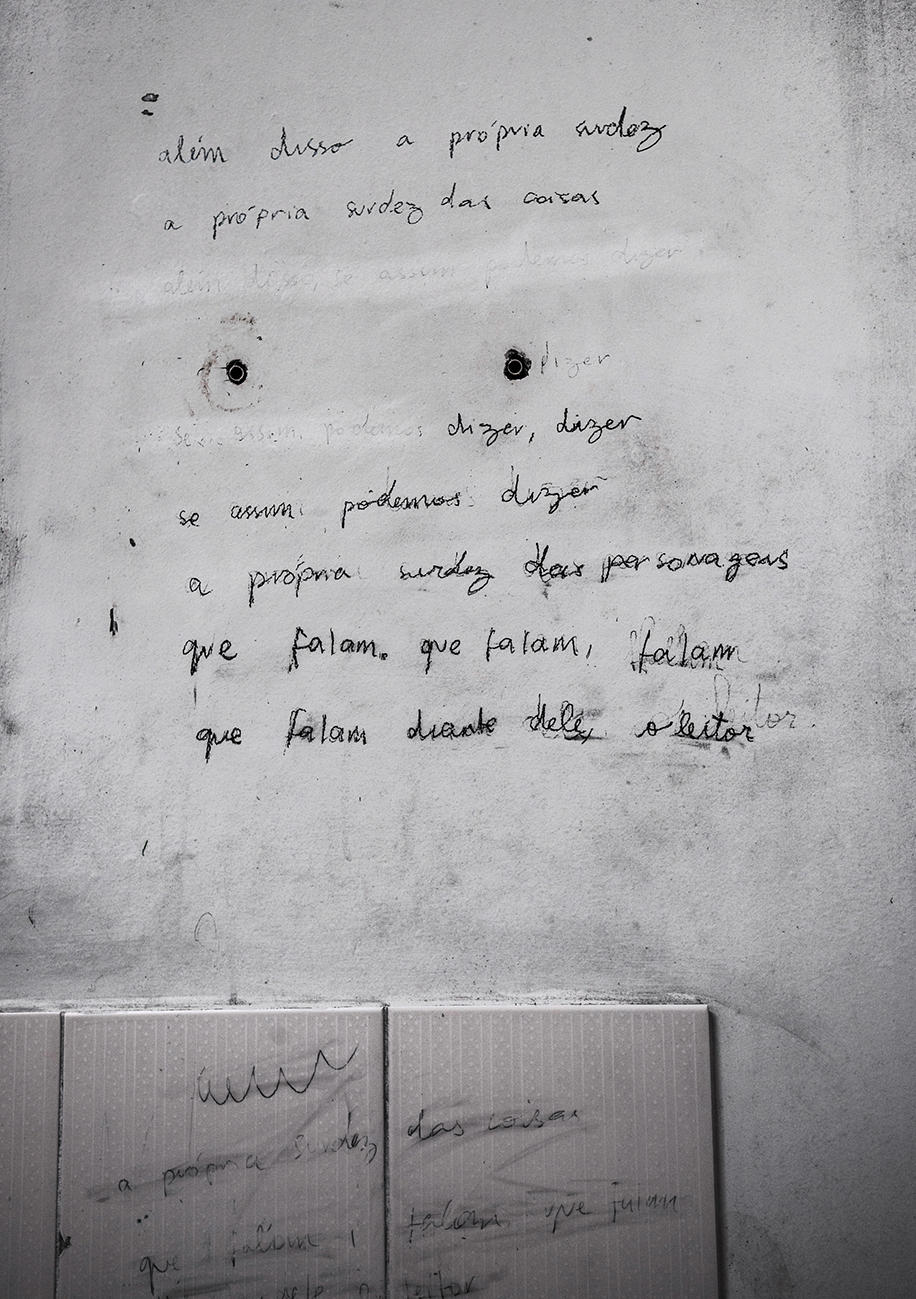 além disso a própria surdez
a própria surdez das coisas
além disso, se assim podemos dizer
dizer
se assim podemos dizer, dizer
se assim podemos dizer
a própria surdez das personagens
que falam. que falam, falam
que falam diante dele, o leitor
a própria surdez das coisas
que falam, falam que falam
leitor